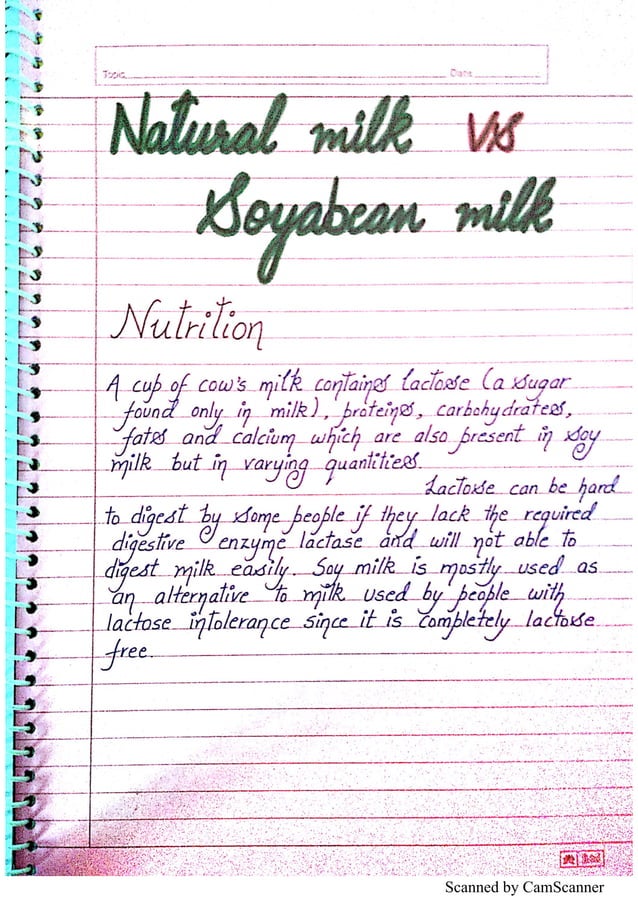 Topic Date
Natural milk Vs
Soyabean milk
Nutrition
A cup of cow's milk contains lactose (a sugar
found only in milk), proteins, carbohydrates,
fats and calcium which are also present in soy
milk but in varying quantities.
Lactose can be hard
to digest by some people if they lack the required
digestive enzyme lactase and will not able to
digest milk easily. Soy milk is mostly used as
an alternative to milk used by people with
lactose intolerance since it is completely lactose
free.
Scanned by CamScanner